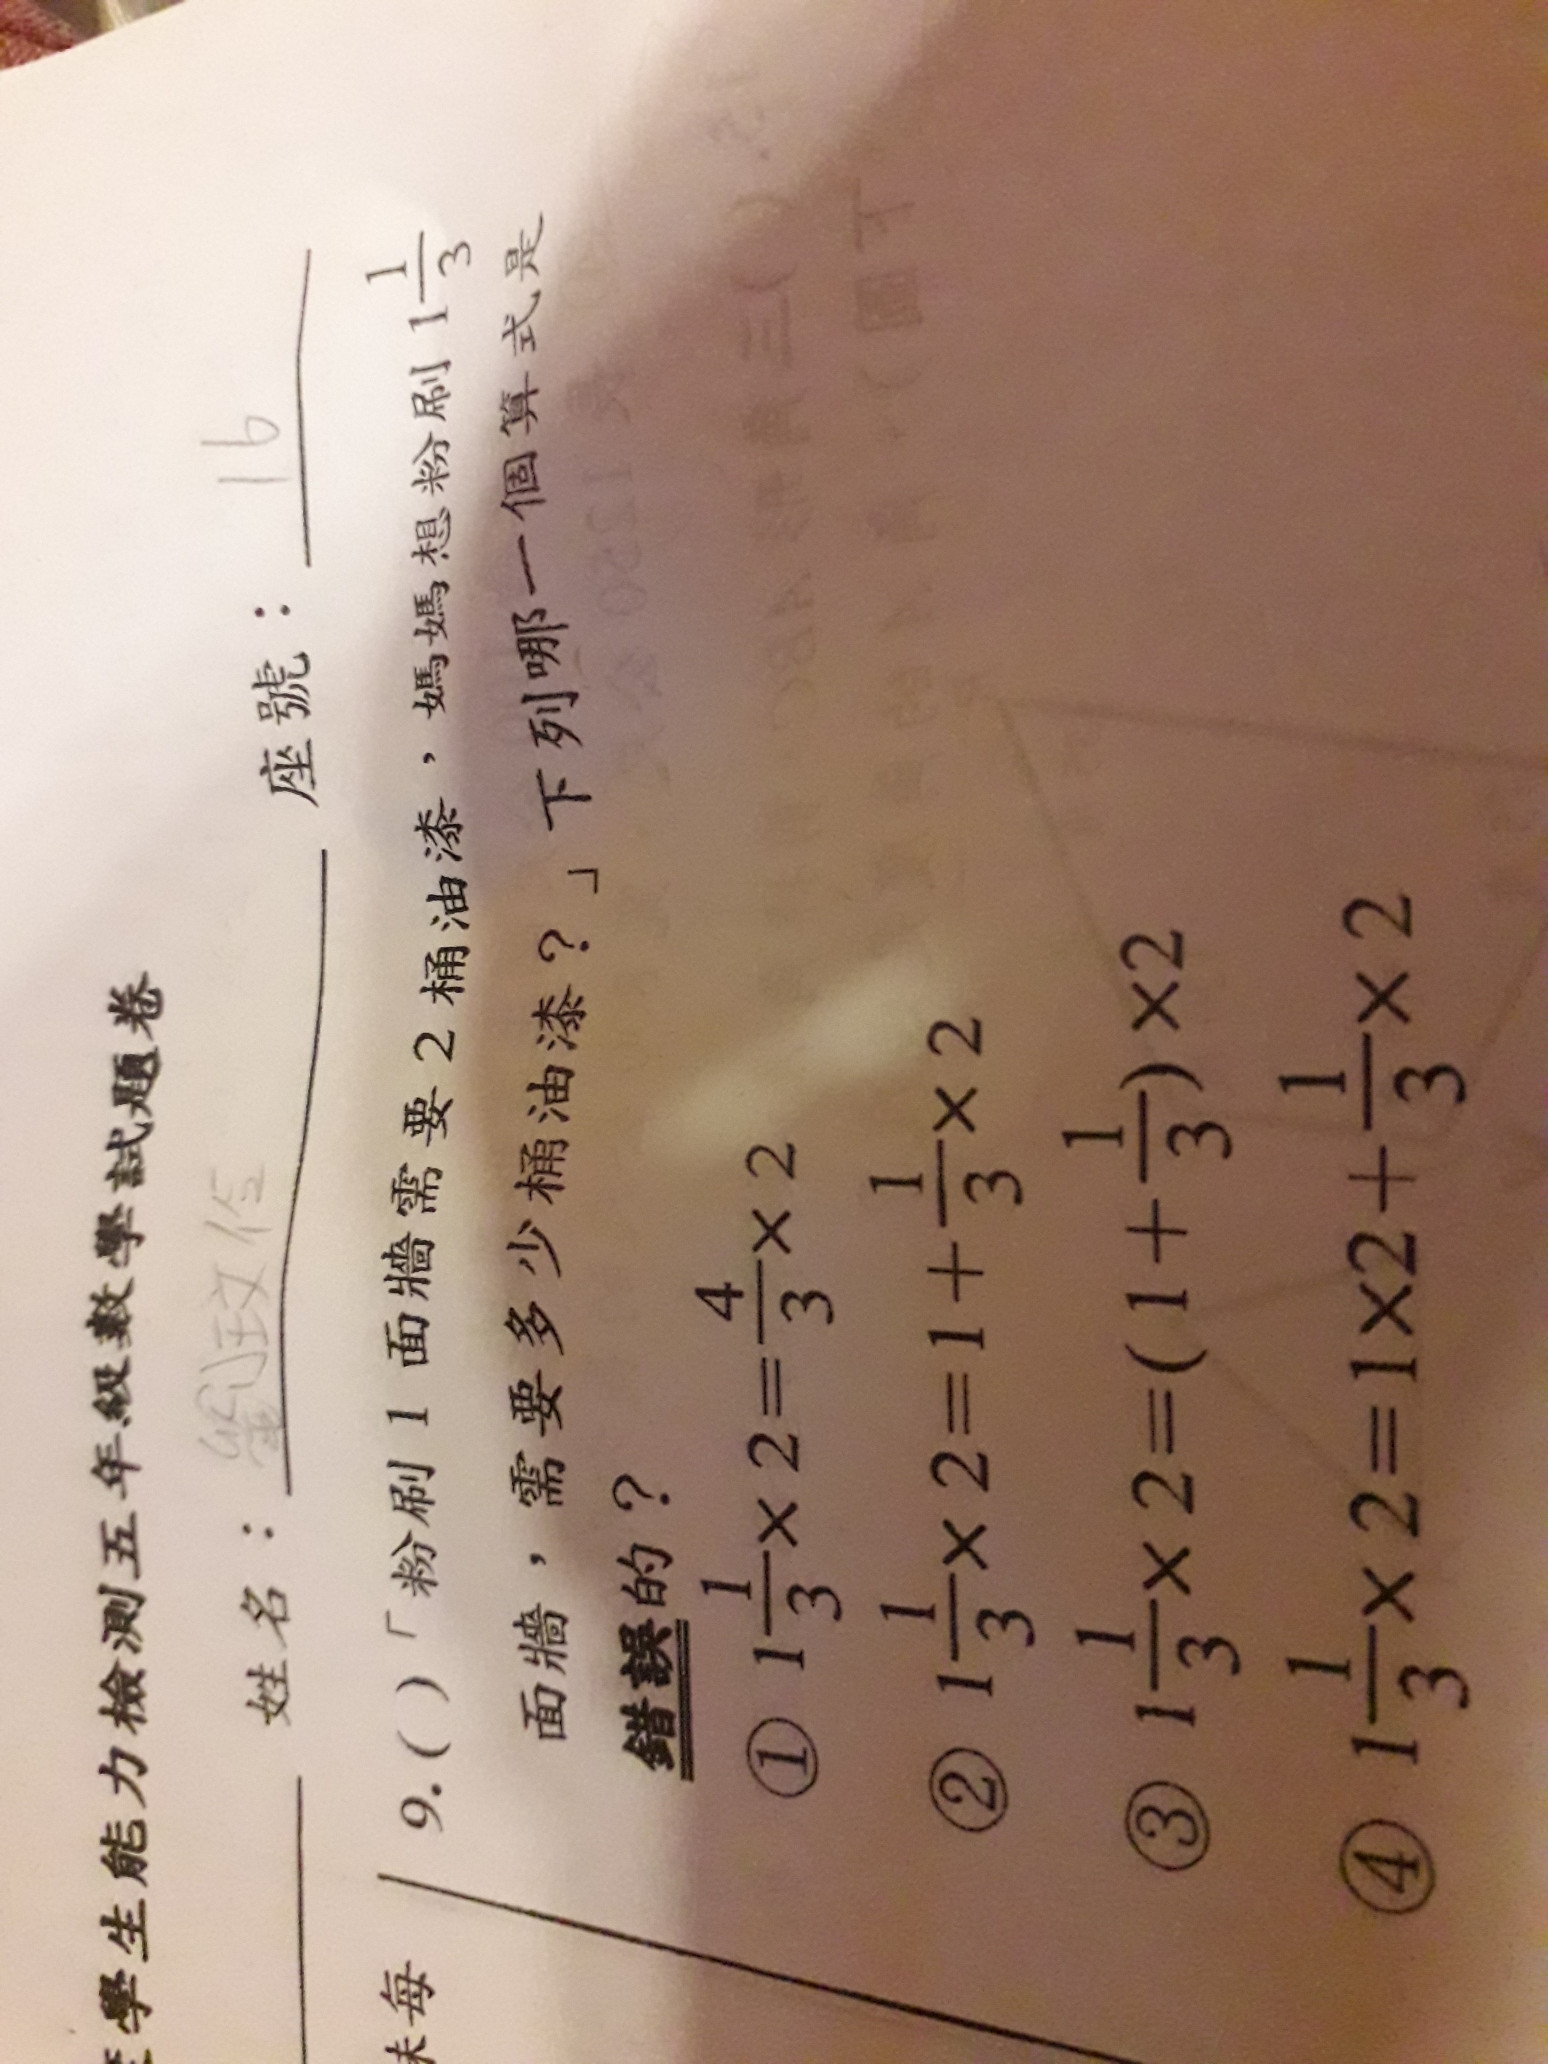 學生能力檢測五年級數學試題卷
姓名： 座號： 16
妹每
9.( )「粉刷 1 面牆需要 2 桶油漆，媽媽想粉刷 1 1/3
面牆，需要多少桶油漆？」下列哪一個算式是
錯誤的？
① 1 1/3 × 2 = 4/3 × 2
② 1 1/3 × 2 = 1 + 1/3 × 2
③ 1 1/3 × 2 = (1 + 1/3) × 2
④ 1 1/3 × 2 = 1 × 2 + 1/3 × 2